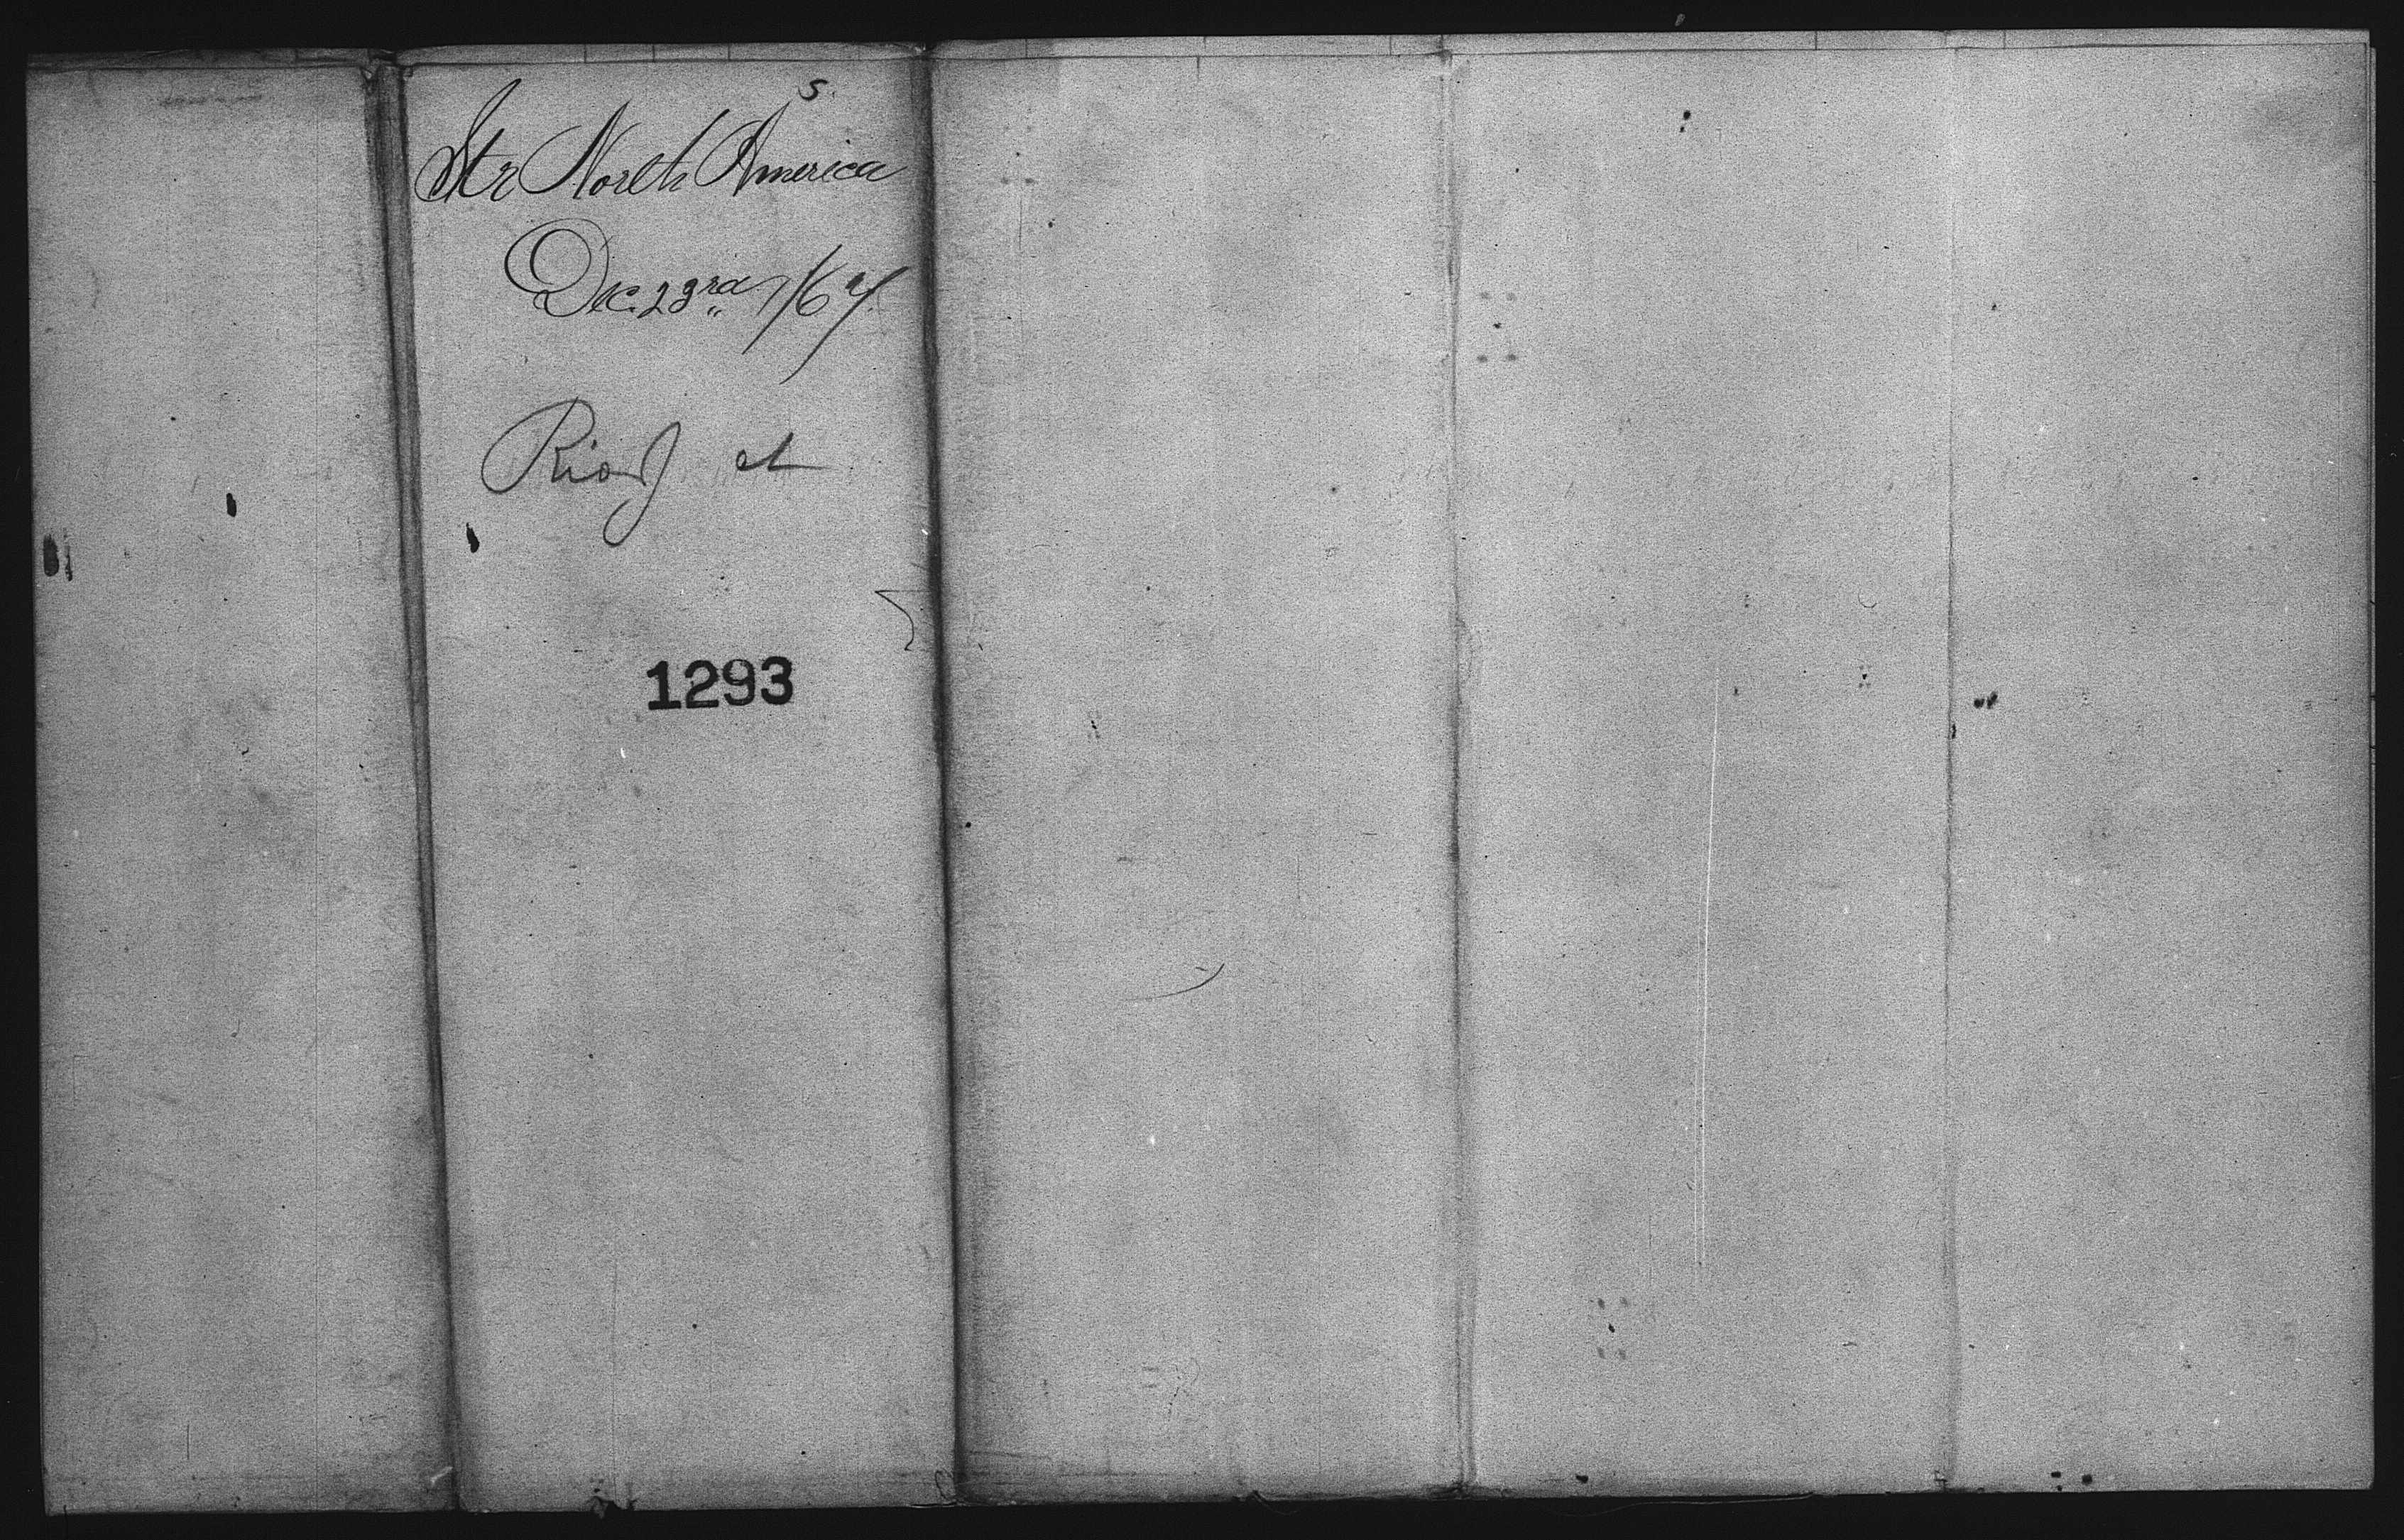 S.
Str North America
Dec. 23rd /67.
Rio J et
1293